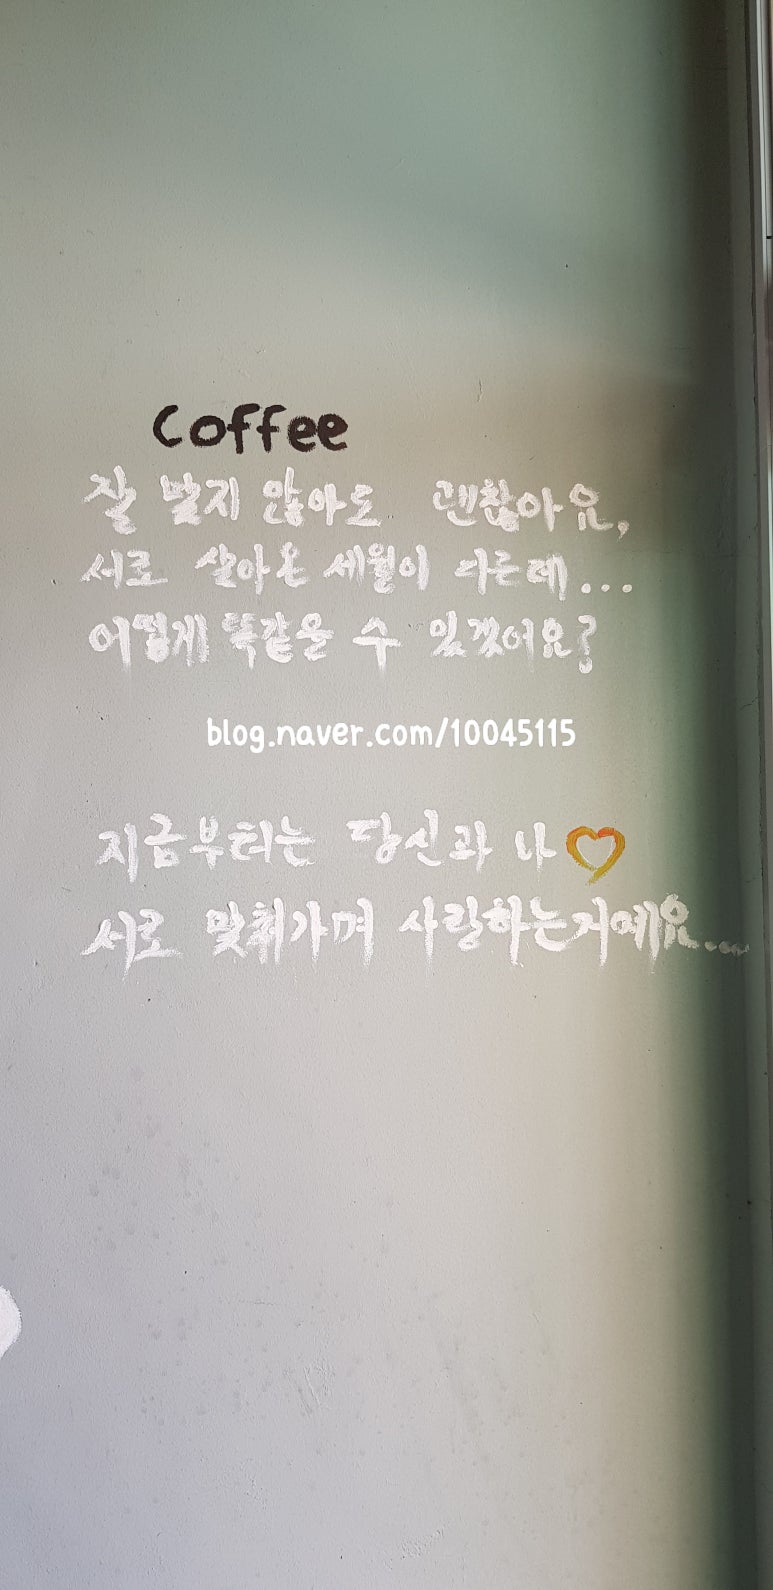 Coffee
잘 맞지 않아도 괜찮아요,
서로 살아온 세월이 다른데...
어떻게 똑같을 수 있겠어요?
blog.naver.com/10045115
지금부터는 당신과 나
서로 맞춰가며 사랑하는거예요...